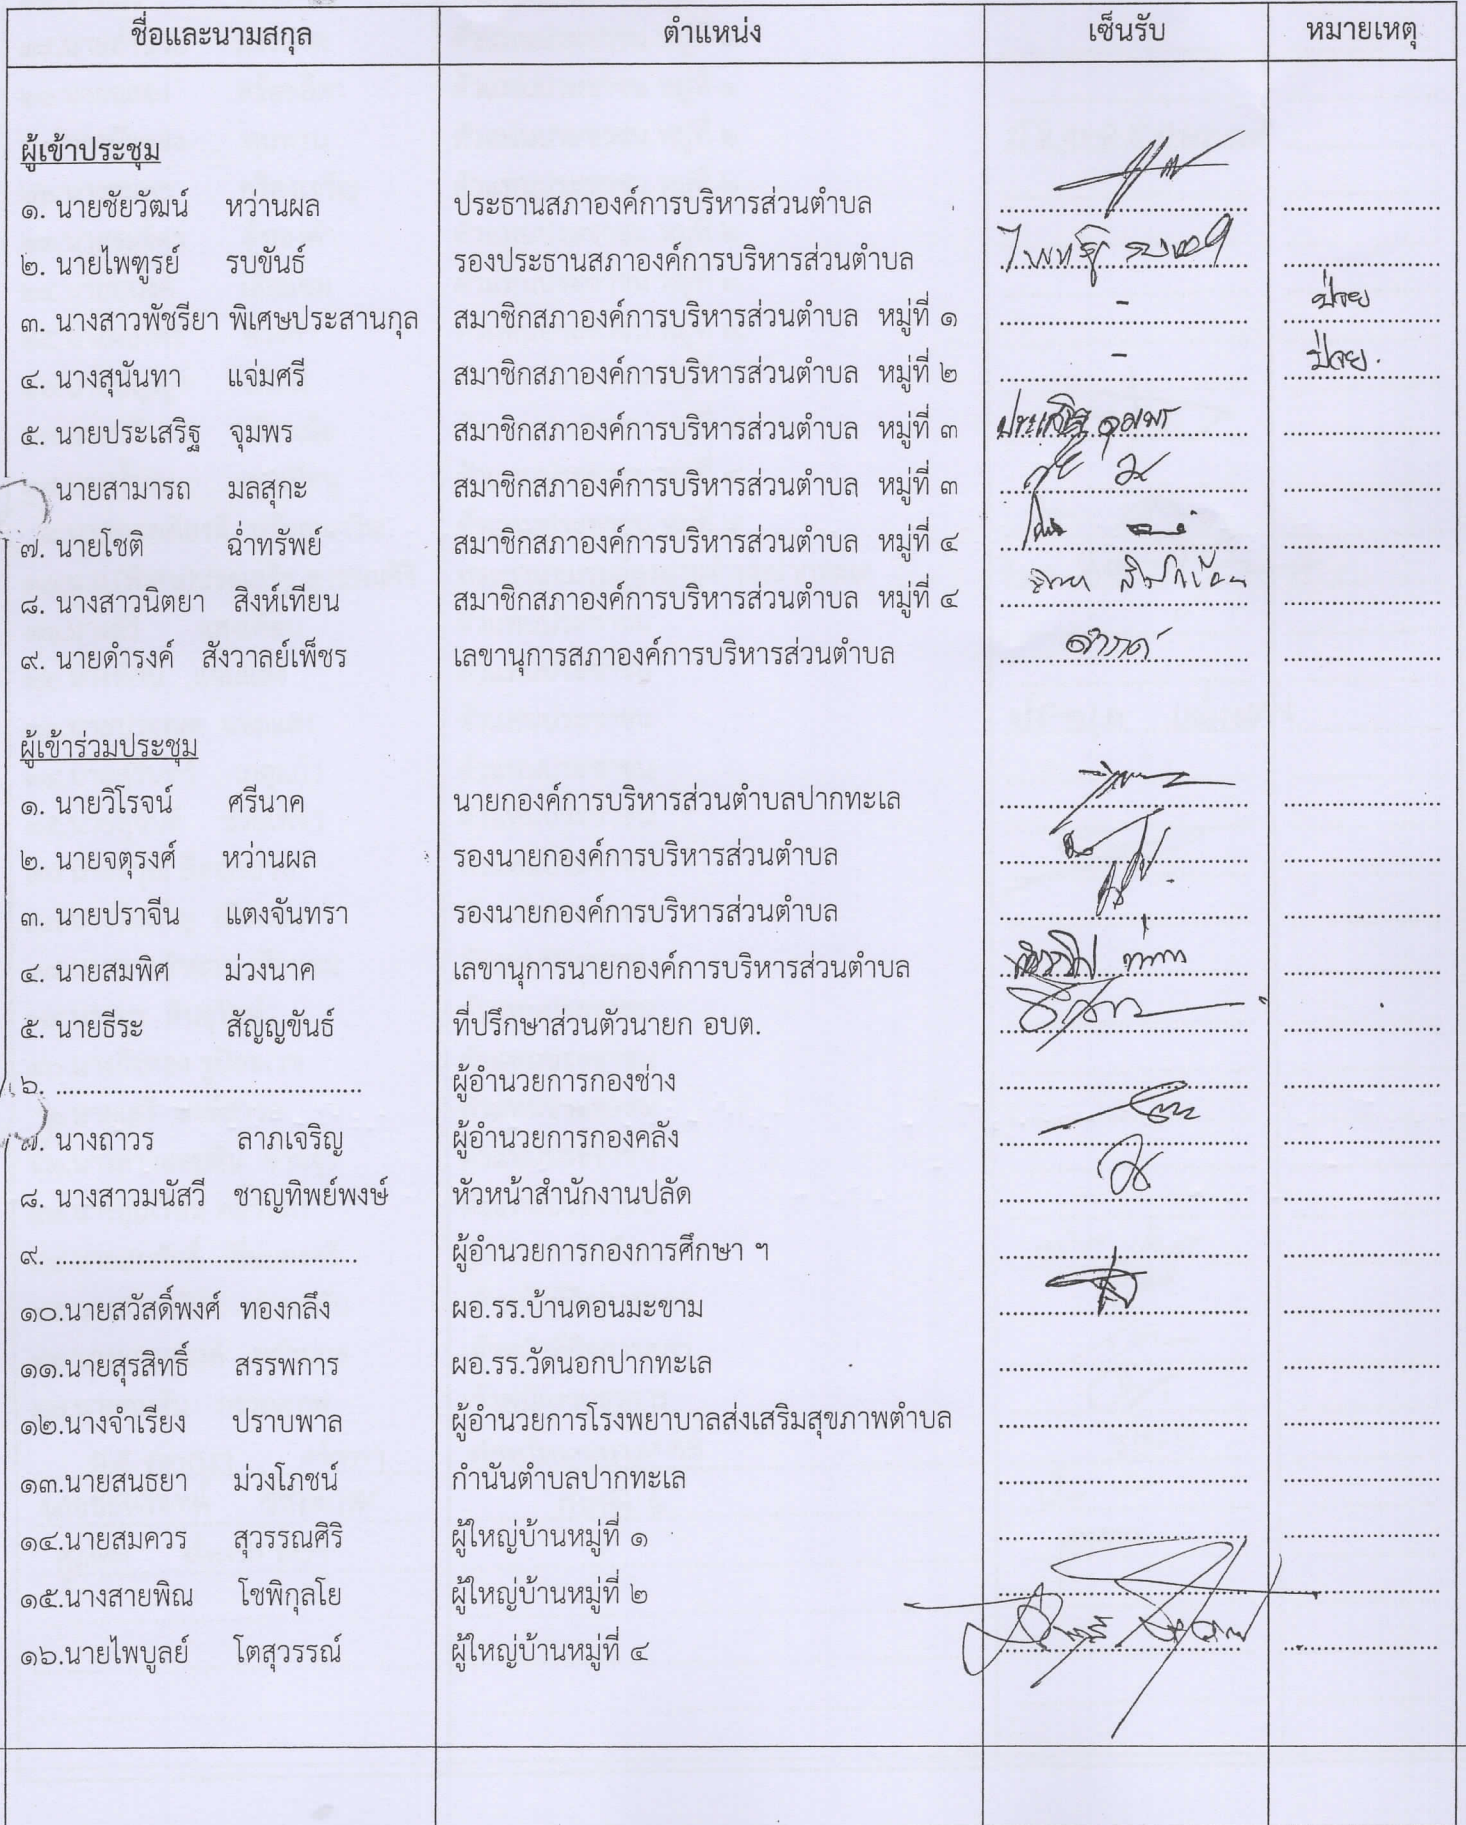 ชื่อและนามสกุล ตำแหน่ง เซ็นรับ หมายเหตุ
ผู้เข้าประชุม
๑. นายชัยวัฒน์ หว่านผล ประธานสภาองค์การบริหารส่วนตำบล
๒. นายไพฑูรย์ รบขันธ์ รองประธานสภาองค์การบริหารส่วนตำบล
๓. นางสาวพัชรียา พิเศษประสานกุล สมาชิกสภาองค์การบริหารส่วนตำบล หมู่ที่ ๑ - ป่วย
๔. นางสุนันทา แจ่มศรี สมาชิกสภาองค์การบริหารส่วนตำบล หมู่ที่ ๒ - ป่วย.
๕. นายประเสริฐ จุมพร สมาชิกสภาองค์การบริหารส่วนตำบล หมู่ที่ ๓ ประเสริฐ จุมพร
นายสามารถ มลสุกะ สมาชิกสภาองค์การบริหารส่วนตำบล หมู่ที่ ๓
๗. นายโชติ ฉ่ำทรัพย์ สมาชิกสภาองค์การบริหารส่วนตำบล หมู่ที่ ๔
๘. นางสาวนิตยา สิงห์เทียน สมาชิกสภาองค์การบริหารส่วนตำบล หมู่ที่ ๔
๙. นายดำรงค์ สังวาลย์เพ็ชร เลขานุการสภาองค์การบริหารส่วนตำบล
ผู้เข้าร่วมประชุม
๑. นายวิโรจน์ ศรีนาค นายกองค์การบริหารส่วนตำบลปากทะเล
๒. นายจตุรงศ์ หว่านผล รองนายกองค์การบริหารส่วนตำบล
๓. นายปราจีน แตงจันทรา รองนายกองค์การบริหารส่วนตำบล
๔. นายสมพิศ ม่วงนาค เลขานุการนายกองค์การบริหารส่วนตำบล
๕. นายธีระ สัญญขันธ์ ที่ปรึกษาส่วนตัวนายก อบต.
๖. .......................................... ผู้อำนวยการกองช่าง
๗. นางถาวร ลาภเจริญ ผู้อำนวยการกองคลัง
๘. นางสาวมนัสวี ชาญทิพย์พงษ์ หัวหน้าสำนักงานปลัด
๙. .......................................... ผู้อำนวยการกองการศึกษา ฯ
๑๐.นายสวัสดิ์พงศ์ ทองกลึง ผอ.รร.บ้านดอนมะขาม
๑๑.นายสุรสิทธิ์ สรรพการ ผอ.รร.วัดนอกปากทะเล
๑๒.นางจำเรียง ปราบพาล ผู้อำนวยการโรงพยาบาลส่งเสริมสุขภาพตำบล
๑๓.นายสนธยา ม่วงโภชน์ กำนันตำบลปากทะเล
๑๔.นายสมควร สุวรรณศิริ ผู้ใหญ่บ้านหมู่ที่ ๑
๑๕.นางสายพิณ โชพิกุลโย ผู้ใหญ่บ้านหมู่ที่ ๒
๑๖.นายไพบูลย์ โตสุวรรณ์ ผู้ใหญ่บ้านหมู่ที่ ๔